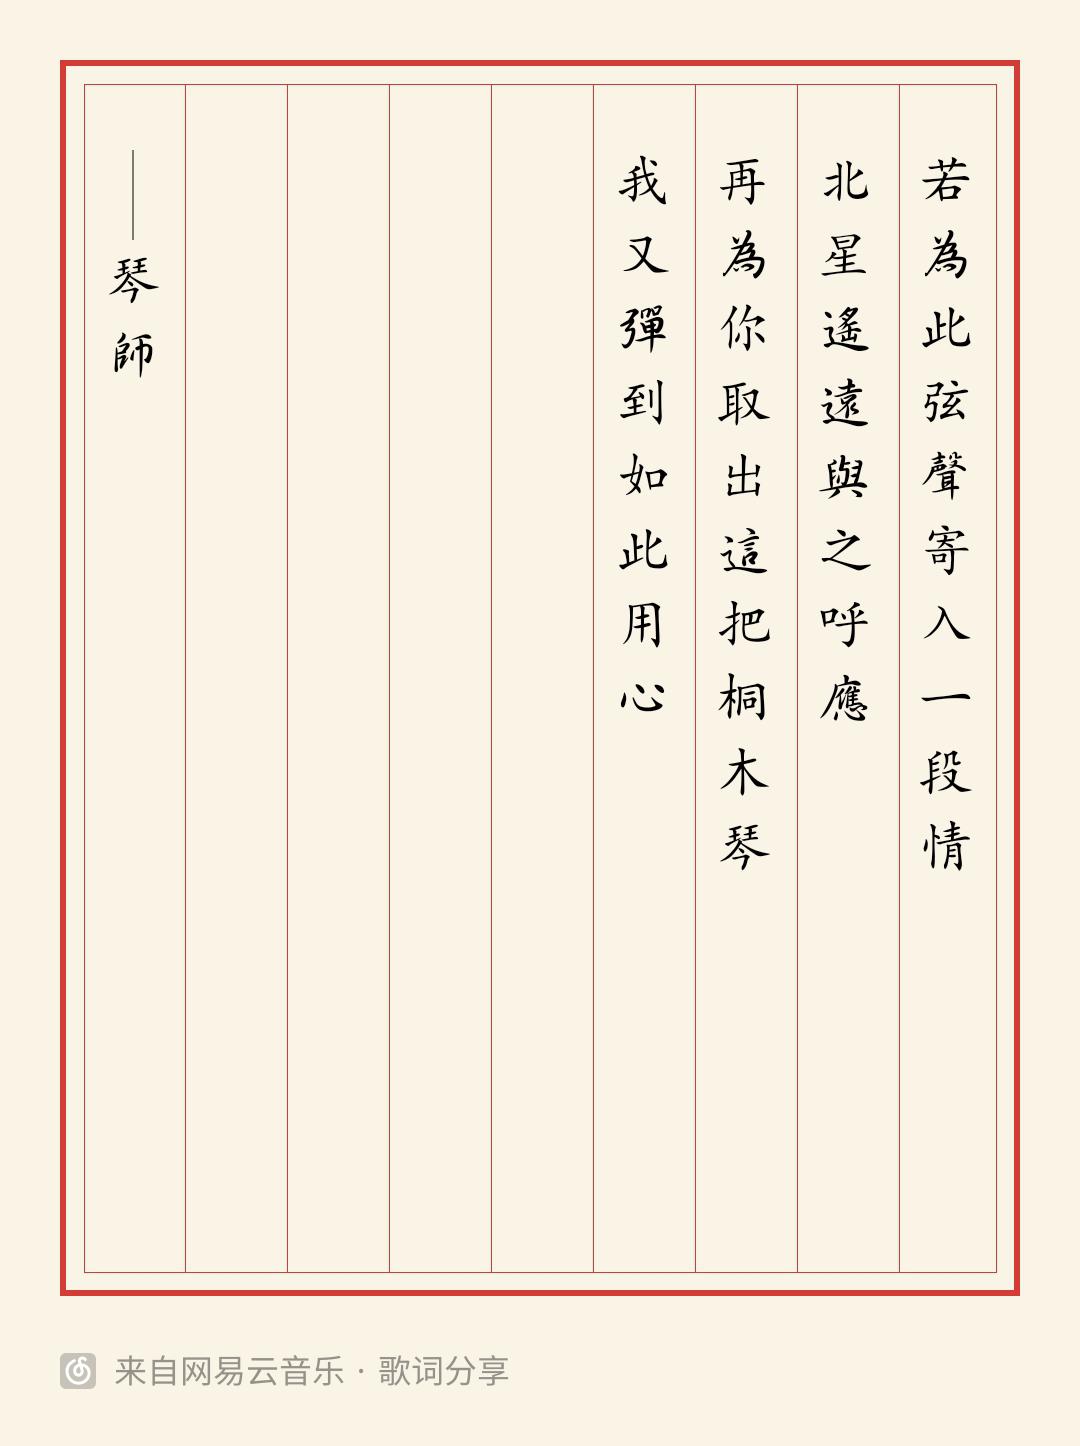 若為此弦聲寄入一段情
北星遙遠與之呼應
再為你取出這把桐木琴
我又彈到如此用心
——琴師
来自网易云音乐 · 歌词分享